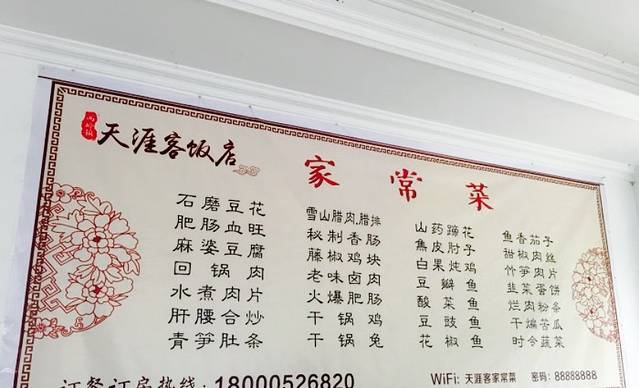 天涯客饭店
家常菜
石磨豆花
肥肠血旺
麻婆豆腐
回锅肉
水煮肉片
肝腰合炒
青笋肚条
雪山腊肉.腊排
秘制香肠
藤椒鸡块
老味卤肉
火爆肥肠
干锅鸡
干锅兔
山药蹄花
焦皮肘子
白果炖鸡
豆瓣鱼
酸菜鱼
豆豉鱼
花椒鱼
鱼香茄子
甜椒肉丝
竹笋肉片
韭菜蛋饼
烂肉粉条
干煸苦瓜
时令蔬菜
订餐订房热线:18000526820
WiFi:天涯客家常菜 密码:88888888